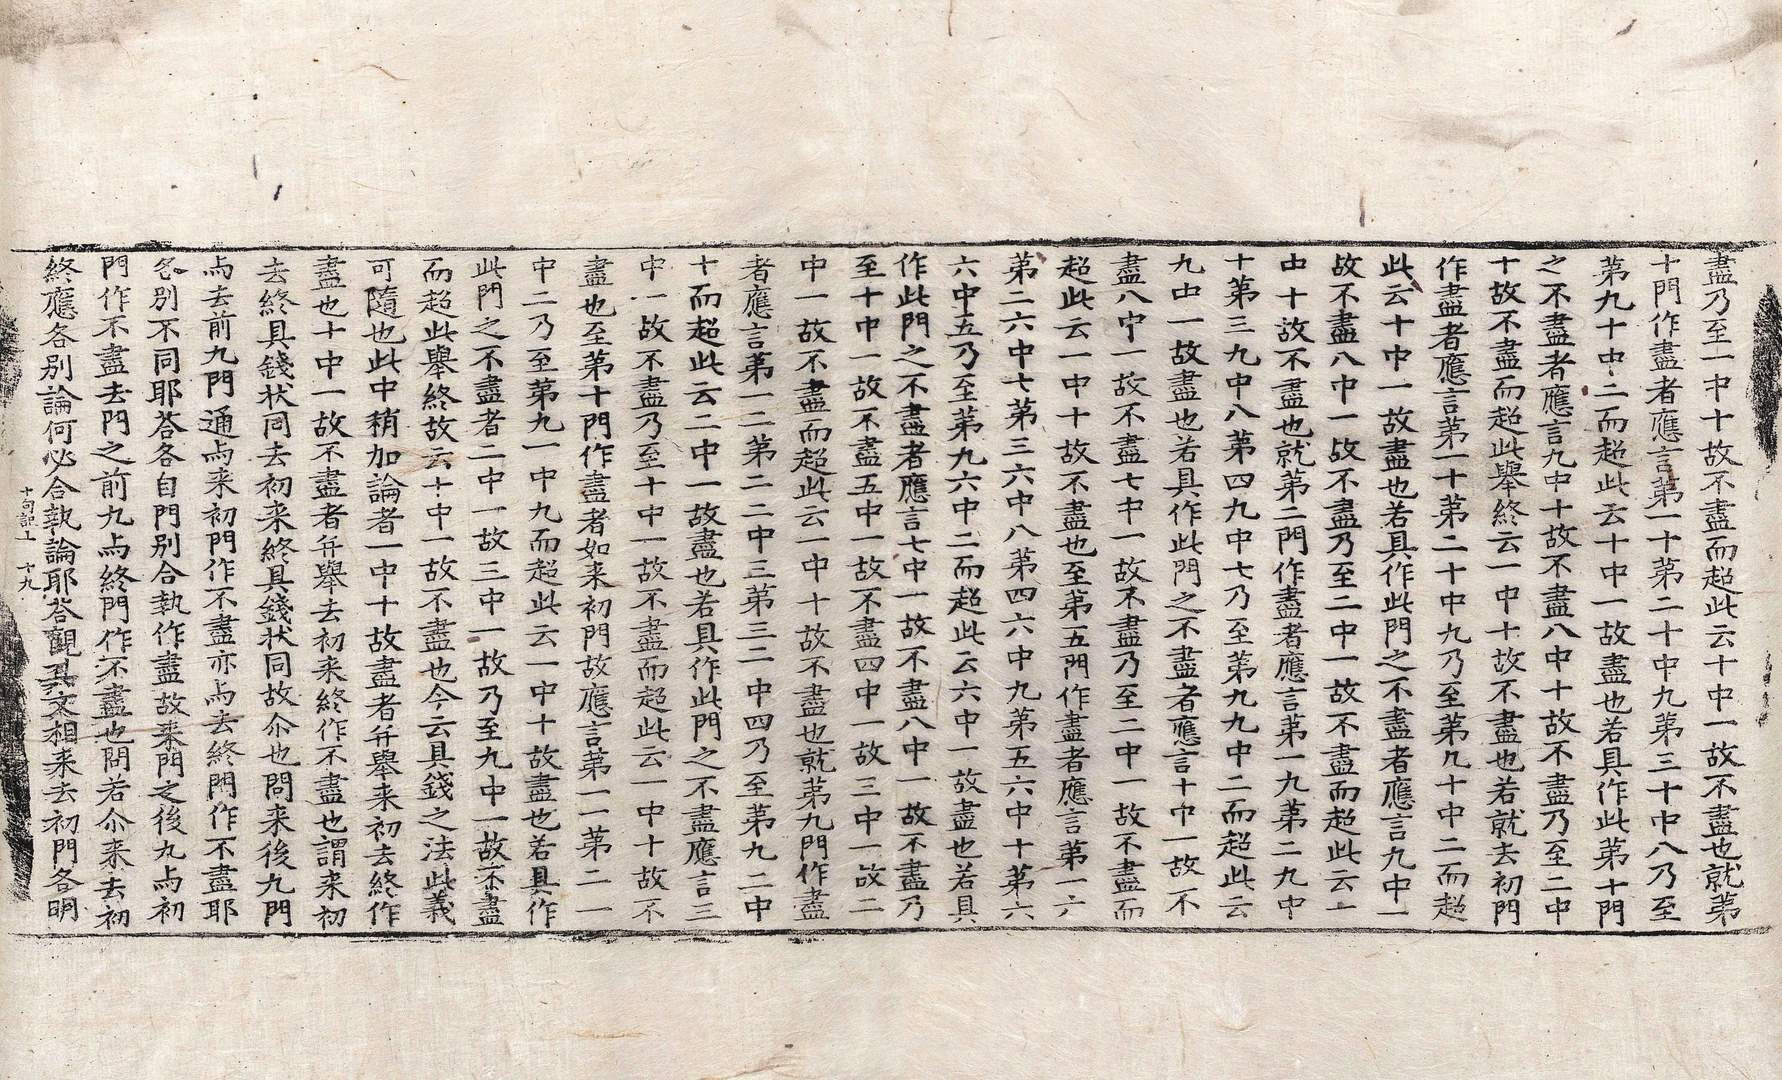 盡乃至一中十故不盡而超此云十中一故不盡也就第
十門作盡者應言第一十第二十中九第三十中八乃至
第九十中二而超此云十中一故盡也若具作此第十門
之不盡者應言九中十故不盡八中十故不盡乃至二中
十故不盡而超此舉終云一中十故不盡也若就去初門
作盡者應言第一十第二十中九乃至第九十中二而超
此云十中一故盡也若具作此門之不盡者應言九中一
故不盡八中一故不盡乃至二中一故不盡而超此云一
中十故不盡也就第二門作盡者應言第一九第二九中
十第三九中八第四九中七乃至第九九中二而超此云
九中一故盡也若具作此門之不盡者應言十中一故不
盡八中一故不盡七中一故不盡乃至二中一故不盡而
超此云一中十故不盡也至第五門作盡者應言第一六
第二六中七第三六中八第四六中九第五六中十第六
六中五乃至第九六中二而超此云六中一故盡也若具
作此門之不盡者應言七中一故不盡八中一故不盡乃
至十中一故不盡五中一故不盡四中一故三中一故二
中一故不盡而超此云一中十故不盡也就第九門作盡
者應言第一二第二二中三第三二中四乃至第九二中
十而超此云二中一故盡也若具作此門之不盡應言三
中一故不盡乃至十中一故不盡而超此云一中十故不
盡也至第十門作盡者如来初門故應言第一一第二一
中二乃至第九一中九而超此云一中十故盡也若具作
此門之不盡者二中一故三中一故乃至九中一故不盡
而超此舉終故云十中一故不盡也今云具錢之法此義
可隨也此中稍加論者一中十故盡者弁舉来初去終作
盡也十中一故不盡者弁舉去初来終作不盡也謂来初
去終具錢狀同去初来終具錢狀同故尒也問来後九門
与去前九門通与来初門作不盡亦与去終門作不盡耶
各別不同耶荅各自門別合執作盡故来門之後九与初
門作不盡去門之前九与終門作不盡也問若尒来去初
終應各別論何必合執論耶荅觀其文相来去初門各明
十句記上 十九